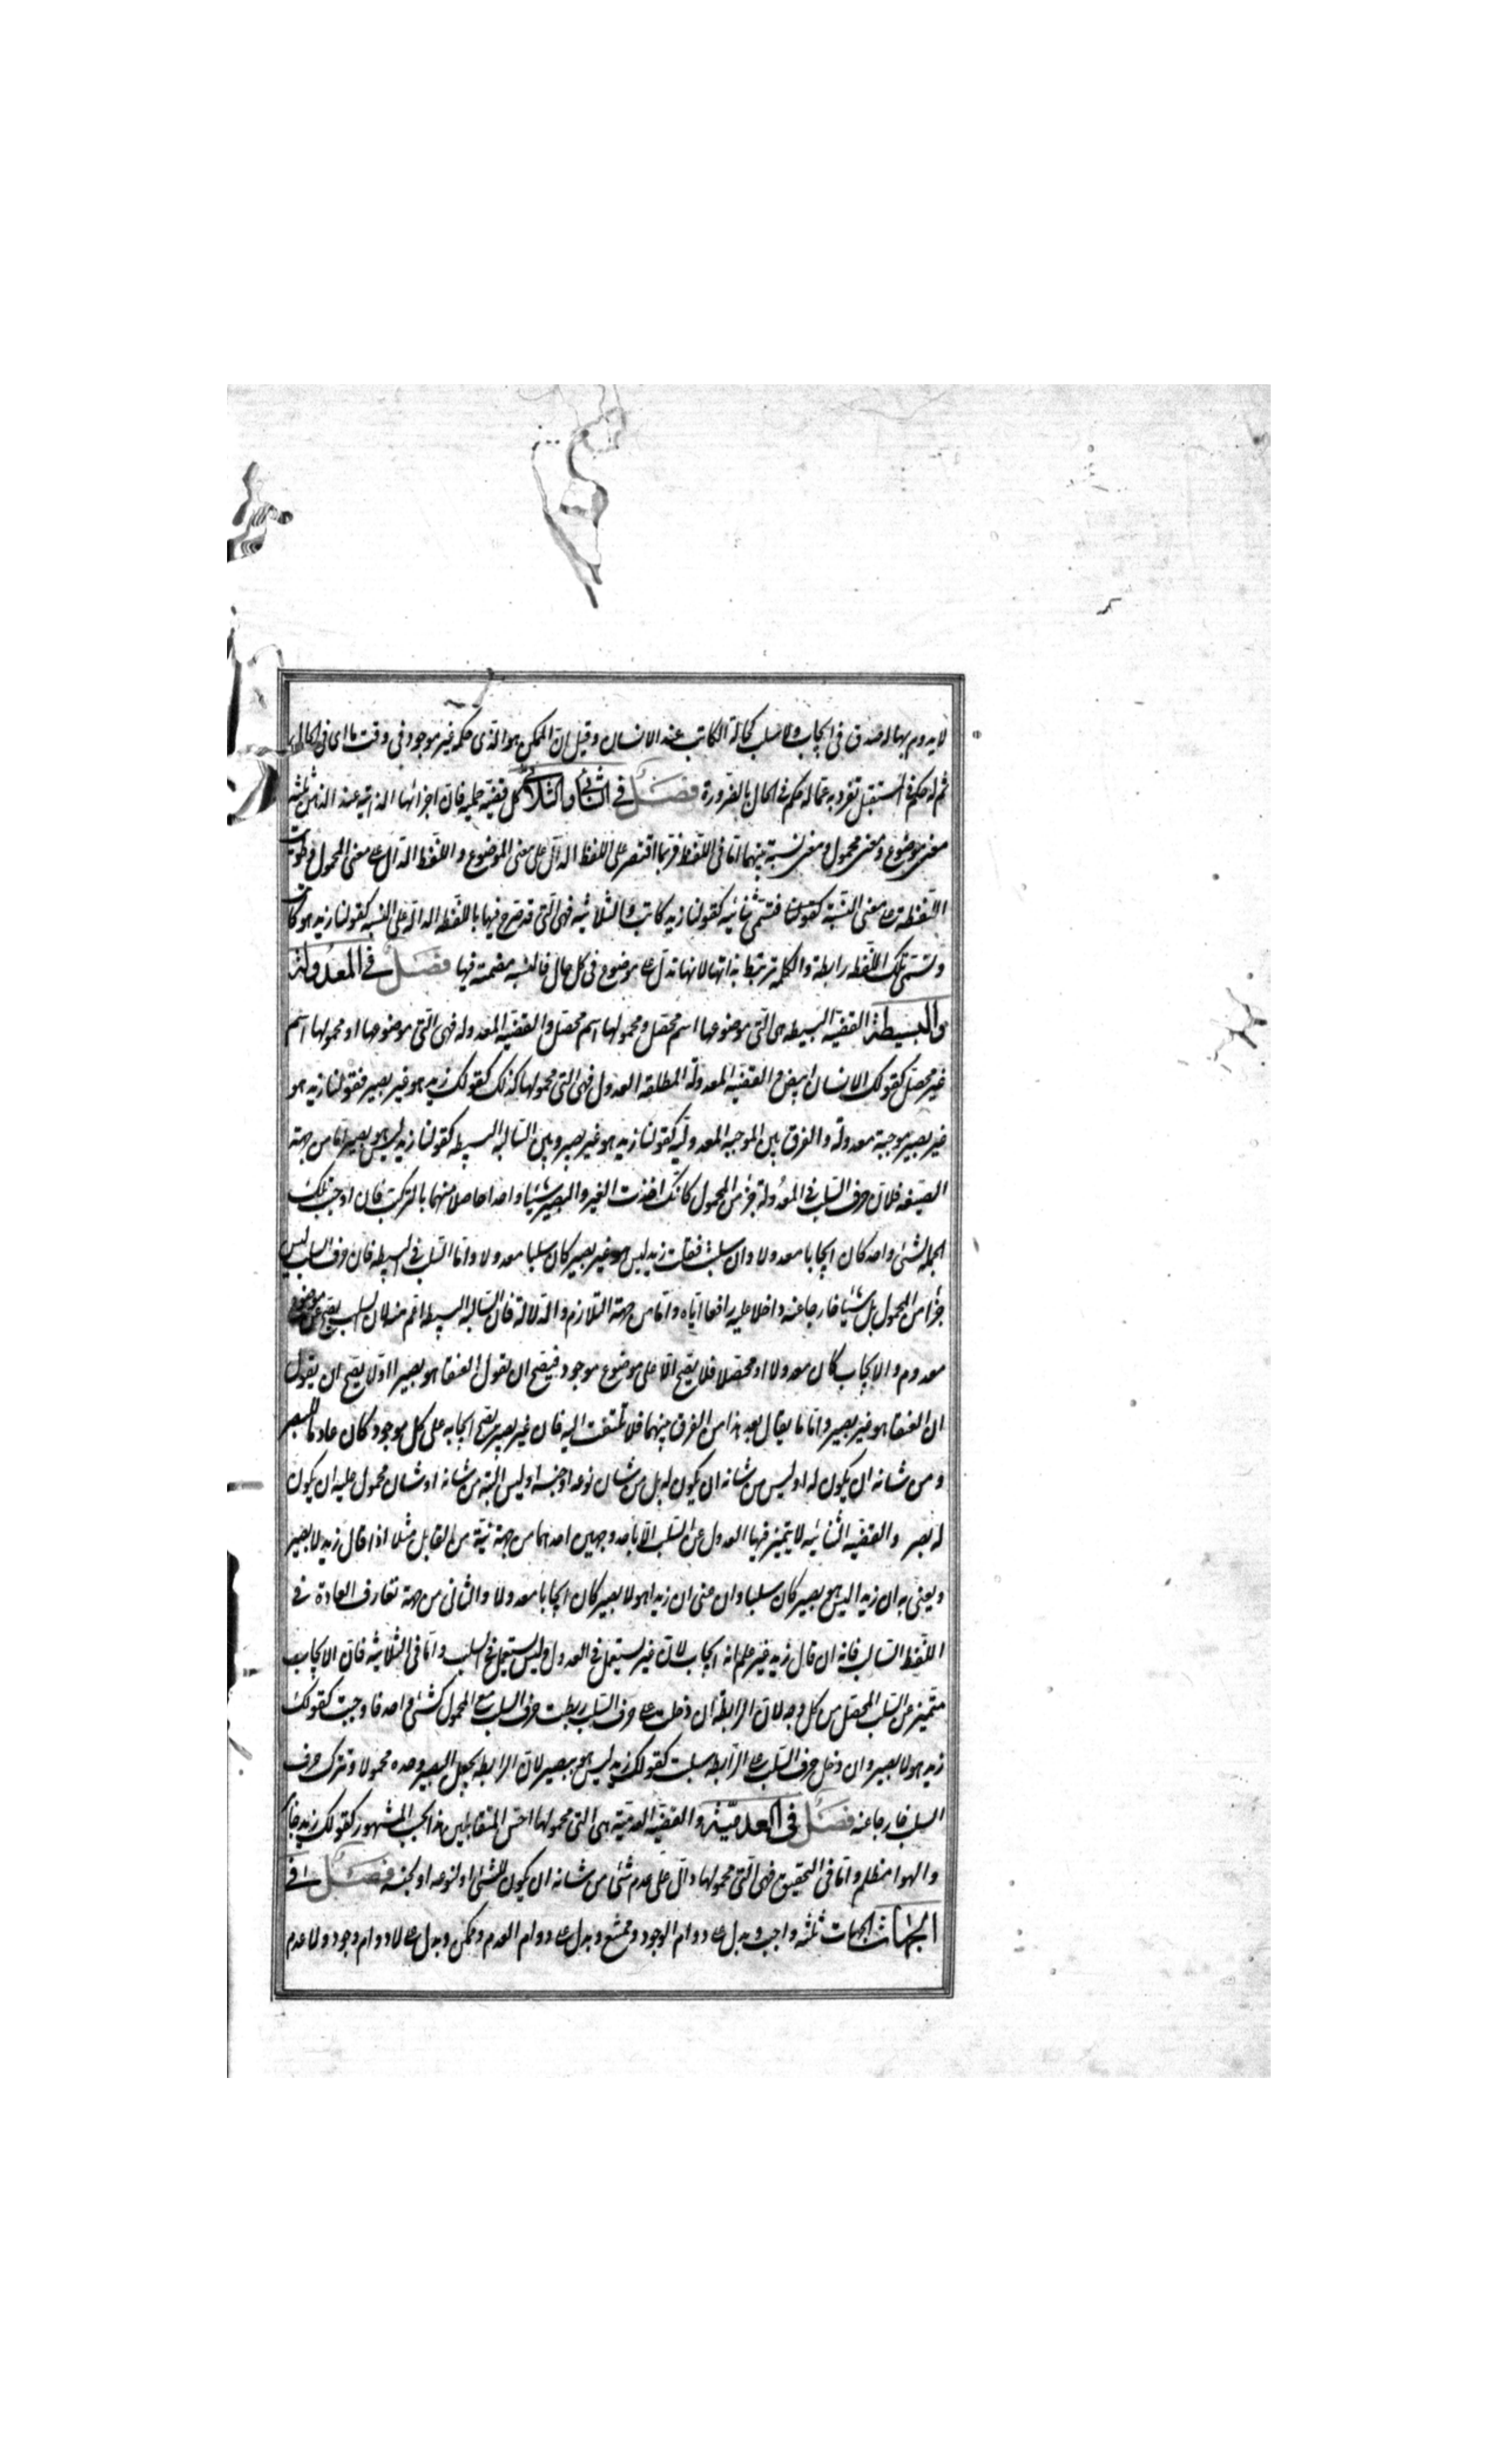 لا يدوم بهاله صدق فى ايجاب ولا سلب كحالة الكاتب عند الانسان وقيل ان الممكن هو الذى حكمه غير موجود فى وقت ما اى فى الحال
ثم له حكم فى المستقبل تفرد به عما له حكم فى الحال بالضرورة فصل فى الثنائى والثلاثى كل قضية حملية فان اجزائها الذهنية عند الذهن ثلثة
معنى موضوع ومعنى محمول ومعنى نسبة بينهما اما فى اللفظ فربما اقتصر على اللفظ الدال على معنى الموضوع واللفظ الدال على معنى المحمول وطويت
اللفظة على معنى النسبة كقولنا فتسمى ثنائيه كقولنا زيد كاتب والثلاثيه فهى التى قد صرح فيها باللفظه الدالة على النسبه كقولنا زيد هو كاتب
وتسمى تلك اللفظه رابطة والكلمه ترتبط بذاتها لانها تدل على موضوع فى كل حال فالنسبه مضمنة فيها فصل فى المعدولة
والبسيطة القضيه البسيطه هى التى موضوعها اسم محصل ومحمولها اسم محصل والقضيه المعدوله فهى التى موضوعها او محمولها اسم
غير محصل كقولك الانسان ابيض والقضيه المعدولة المطلقه العدول فهى التى محمولها كذلك كقولك زيد هو غير بصير فقولنا زيد هو
غير بصير موجبة معدولة والفرق بين الموجبه المعدوليه كقولنا زيد هو غير بصير وبين السالبه البسيطه كقولنا زيد ليس هو بصير اما من جهة
الصيغه فلان حرف السلب فى المعدولة جزء من المحمول كانك اخذت الغير والبصير شيئا واحدا حاصلا منهما بالتركيب فان اوجبت تلك
الجمله لشئ واحد كان ايجابا معدولا وان سلبت فقلت زيد ليس هو غير بصير كان سلبا معدولا واما السلب فى البسيطه فان حرف السلب ليس
جزأ من المحمول بل شيئا خارجا عنه داخلا عليه رافعا اياه واما من جهة التلازم والدلالة فان السالبه البسيطه اعم منه لان السلب يصح عن موضوع
معدوم والايجاب كان معدولا او محصلا فلا يصح الا على موضوع موجود فيصح ان تقول العنقا هو بصيرا اولا يصح ان يقول
ان العنقا هو غير بصير واما ما يقال بعد هذا من الفرق بينهما فلا تلتفت اليه فان غير بصير يصح ايجابه على كل موجود كان عادما للبصر
ومن شانه ان يكون له او ليس من شانه ان يكون له بل من شان نوعه او جنسه او ليس البتة من شانه او شان محمول عليه ان يكون
له بصر والقضيه الثنائيه لا يتميز فيها العدول عن السلب الا باحد وجهين احدهما من جهة نية من القابل مثلا اذا قال زيد لا بصير
ويعنى به ان زيدا ليس هو بصير كان سلبا وان عنى ان زيدا هو لا بصير كان ايجابا معدولا والثانى من جهة تعارف العادة فى
اللفظ السالب فانه ان قال زيد غير علم انه ايجاب لان غير يستعمل فى العدول وليس يستعمل فى السلب واما فى الثلاثيه فان الايجاب
متميز عن السلب المحصل من كل وجه لان الرابطة ان دخلت على حرف السلب ربطت حرف السلب مع المحمول كشئ واحد فاوجبت كقولك
زيد هو لا بصير وان دخل حرف السلب على الرابطه سلبت كقولك زيد ليس هو ببصير لان الرابطه يجعل البصير وحده محمولا وتترك حرف
السلب خارجا عنه فصل فى العدمية والقضيه العدمية هى التى محمولها اخس المتقابلين هذا بحسب المشهور كقولك زيد جاير
والهوا مظلم واما فى التحقيق فهى التى محمولها دال على عدم شئ من شانه ان يكون للشئ او لنوعه او لجنسه فصل فى
الجهات الجهات ثلثه واجب ويدل على دوام الوجود وممتنع ويدل على دوام العدم وممكن ويدل على لا دوام وجود ولا عدم